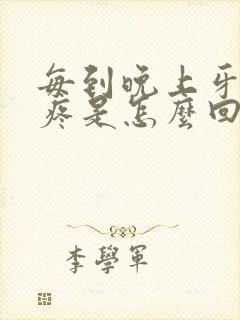 每到晚上牙
疼是怎麼回
李學軍